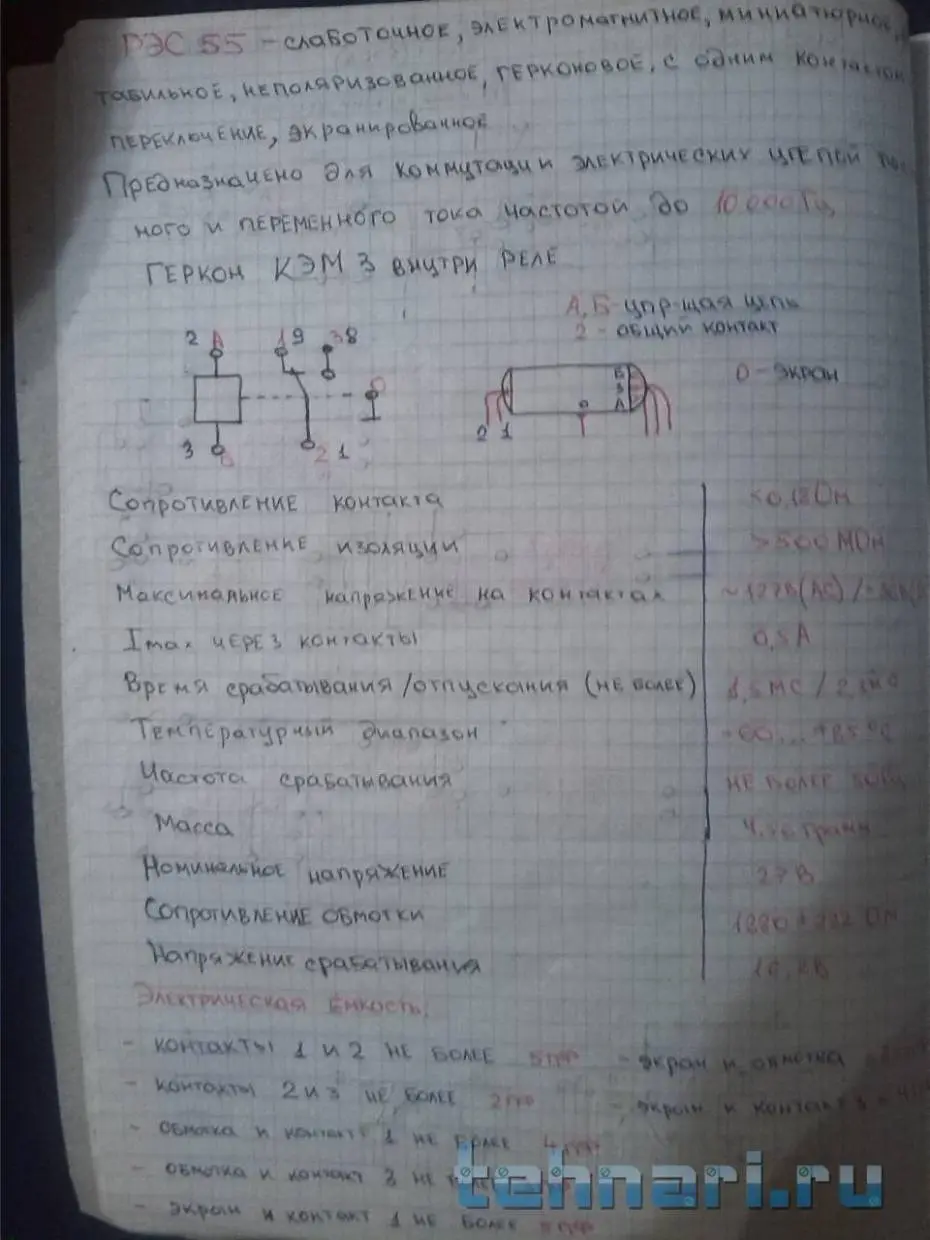 РЭС 55 - слаботочное, электромагнитное, миниатюрное,
табильное, неполяризованное, герконовое, с одним контактом
переключение, экранированное
Предназначено для коммутации электрических цепей
ного и переменного тока частотой до 10000 Гц
Геркон КЭМ 3 внутри реле
А, Б - упр-щая цепь
2 - общий контакт
0 - экран
2 А 1 9 3 8
3 Б 2 1
Б
3
А
2 1
Сопротивление контакта <0,18 Ом
Сопротивление изоляции >500 МОм
Максимальное напряжение на контактах ~127В(AC) /
Imax через контакты 0,5 А
Время срабатывания/отпускания (не более) 1,5 мс /
Температурный диапазон -60... +85°C
Частота срабатывания не более
Масса грамм
Номинальное напряжение 27 В
Сопротивление обмотки Ом
Напряжение срабатывания
Электрическая ёмкость:
- контакты 1 и 2 не более 5пФ - экран и обмотка
- контакты 2 и 3 не более 2пФ - экран и контакт 3
- обмотка и контакт 1 не более 4пФ
- обмотка и контакт 3 не более
- экран и контакт 1 не более пФ
tehnari.ru